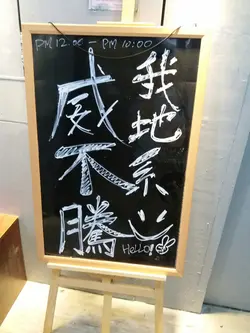 PM 12:00 - PM 10:00
我地系
威不騰
HeLLo!